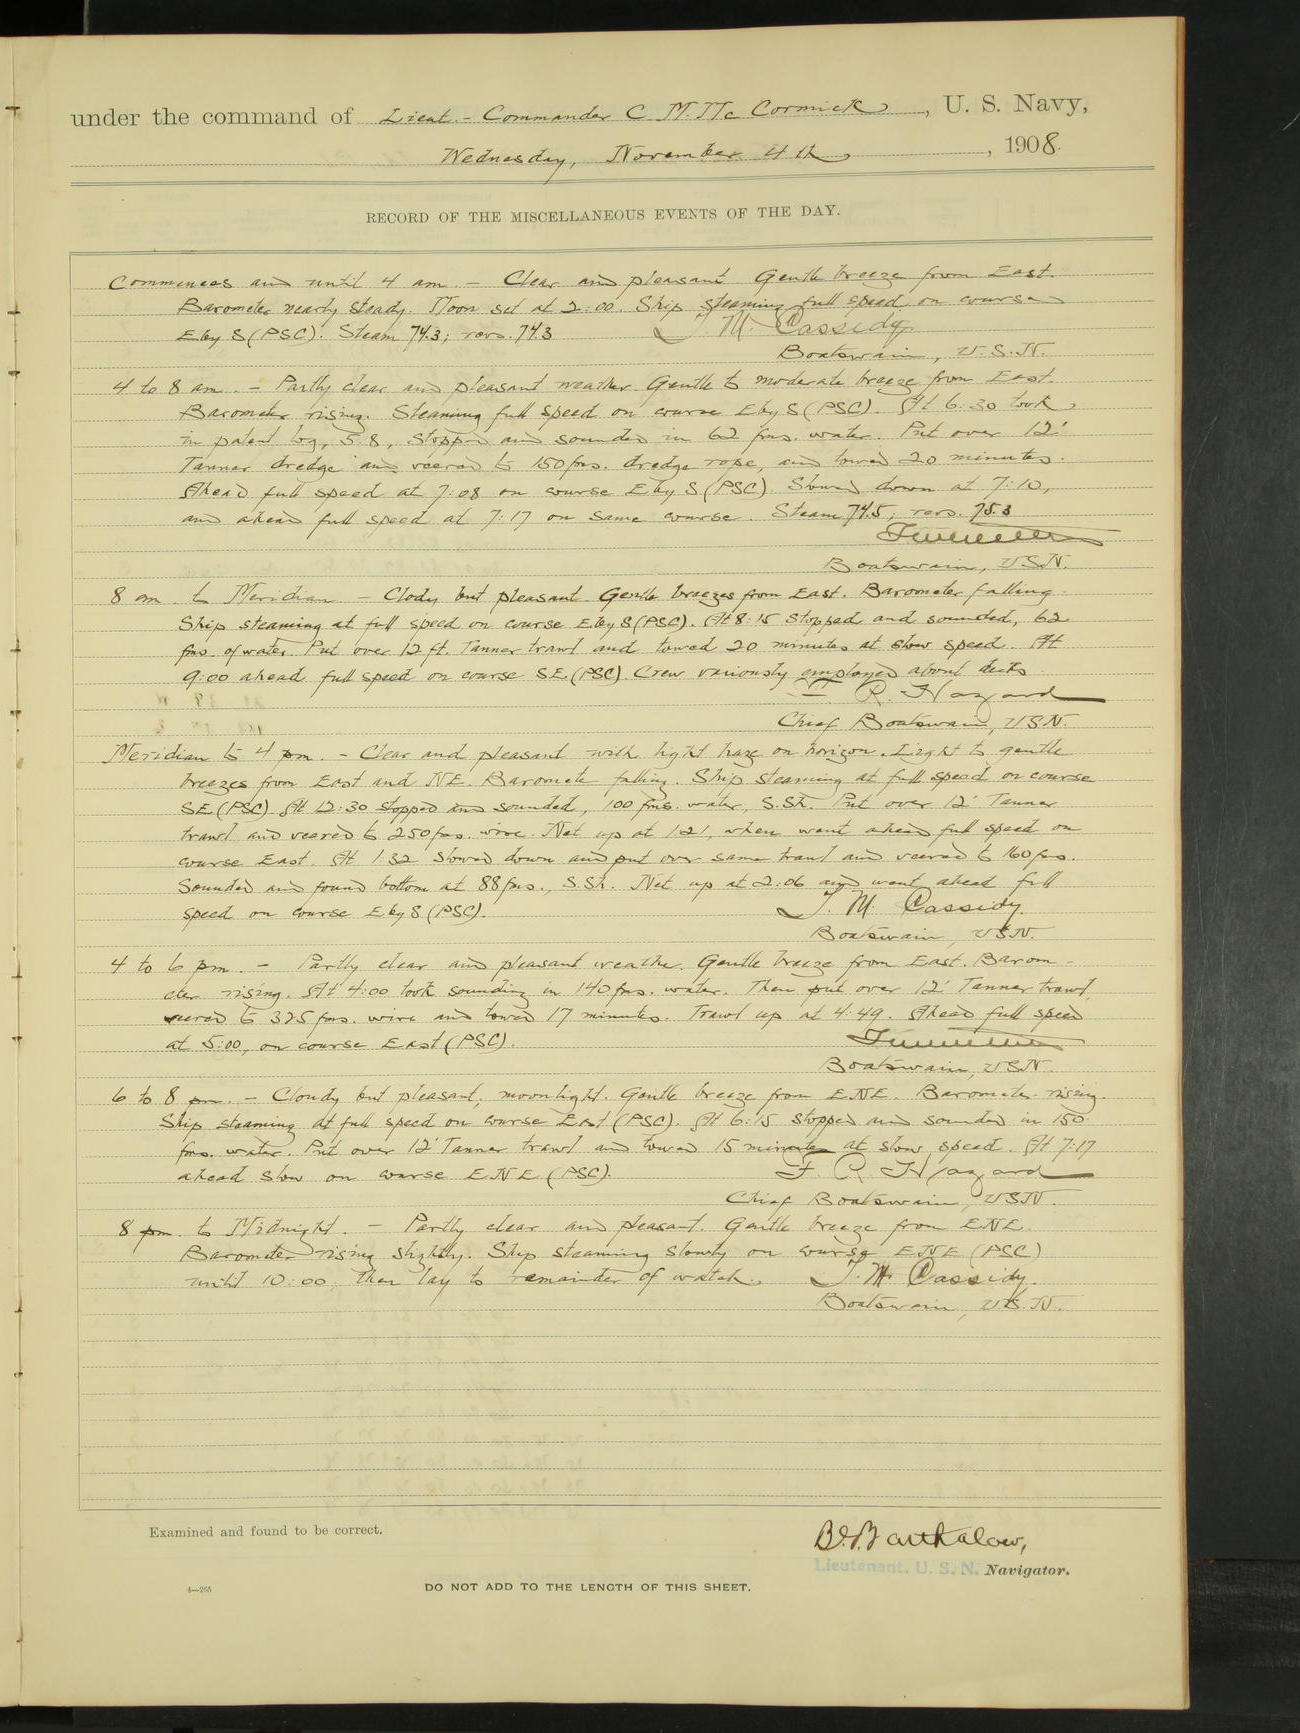 under the command of Lieut.-Commander C M. Mc Cormick, U. S. Navy,
Wednesday, November 4th, 1908.
RECORD OF THE MISCELLANEOUS EVENTS OF THE DAY.
Commences and until 4 am. - Clear and pleasant Gentle breeze from East.
Barometer nearly steady. Moon set at 2:00. Ship steaming full speed on course
E by S (PSC). Steam 74.3; revs. 74.3 T. M. Cassidy
Boatswain, U.S.N.
4 to 8 am. - Partly clear and pleasant weather. Gentle to moderate breeze from East.
Barometer rising. Steaming full speed on course E by S (PSC). At 6:30 took
in patent log, 5.8, stopped and sounded in 62 fms. water. Put over 12'
Tanner dredge and veered to 150 fms. dredge rope, and towed 20 minutes.
Ahead full speed at 7:08 on course E by S (PSC). Slowed down at 7:10,
and ahead full speed at 7:17 on same course. Steam 74.5; revs. 75.3
Boatswain, USN.
8 am. to Meridian - Clody but pleasant. Gentle breezes from East. Barometer falling.
Ship steaming at full speed on course E. by S (PSC). At 8:15 stopped and sounded, 62
fms. of water. Put over 12 ft. Tanner trawl and towed 20 minutes at slow speed. At
9:00 ahead full speed on course SE. (PSC). Crew variously employed about decks
F. R. Hazard
Chief Boatswain, USN.
Meridian to 4 pm. - Clear and pleasant with light haze on horizon. Light to gentle
breezes from East and NE. Barometer falling. Ship steaming at full speed on course
SE (PSC). At 12:30 stopped and sounded, 100 fms. water, S.Sh. Put over 12' Tanner
trawl and veered to 250 fms. wire. Net up at 1:21, when went ahead full speed on
course East. At 1:32 slowed down and put over same trawl and veered to 160 fms.
Sounded and found bottom at 88 fms., S.Sh. Net up at 2:06 and went ahead full
speed on course E by S (PSC). T. M. Cassidy
Boatswain, USN.
4 to 6 pm. - Partly clear and pleasant weather. Gentle breeze from East. Barom-
eter rising. At 4:00 took sounding in 140 fms. water. Then put over 12' Tanner trawl,
veered to 325 fms. wire and towed 17 minutes. Trawl up at 4:49. Ahead full speed
at 5:00, on course East (PSC).
Boatswain, USN.
6 to 8 pm. - Cloudy but pleasant; moonlight. Gentle breeze from ENE. Barometer rising.
Ship steaming at full speed on course East (PSC). At 6:15 stopped and sounded in 150
fms. water. Put over 12' Tanner trawl and towed 15 minutes at slow speed. At 7:17
ahead slow on course ENE (PSC). F. R. Hazard
Chief Boatswain, USN.
8 pm. to Midnight. - Partly clear and pleasant. Gentle breeze from ENE.
Barometer rising slightly. Ship steaming slowly on course ENE (PSC)
until 10:00, then lay to remainder of watch. T. M. Cassidy.
Boatswain, U.S.N.
Examined and found to be correct.
Barthalow,
Lieutenant, U. S. N. Navigator.
4—265
DO NOT ADD TO THE LENGTH OF THIS SHEET.